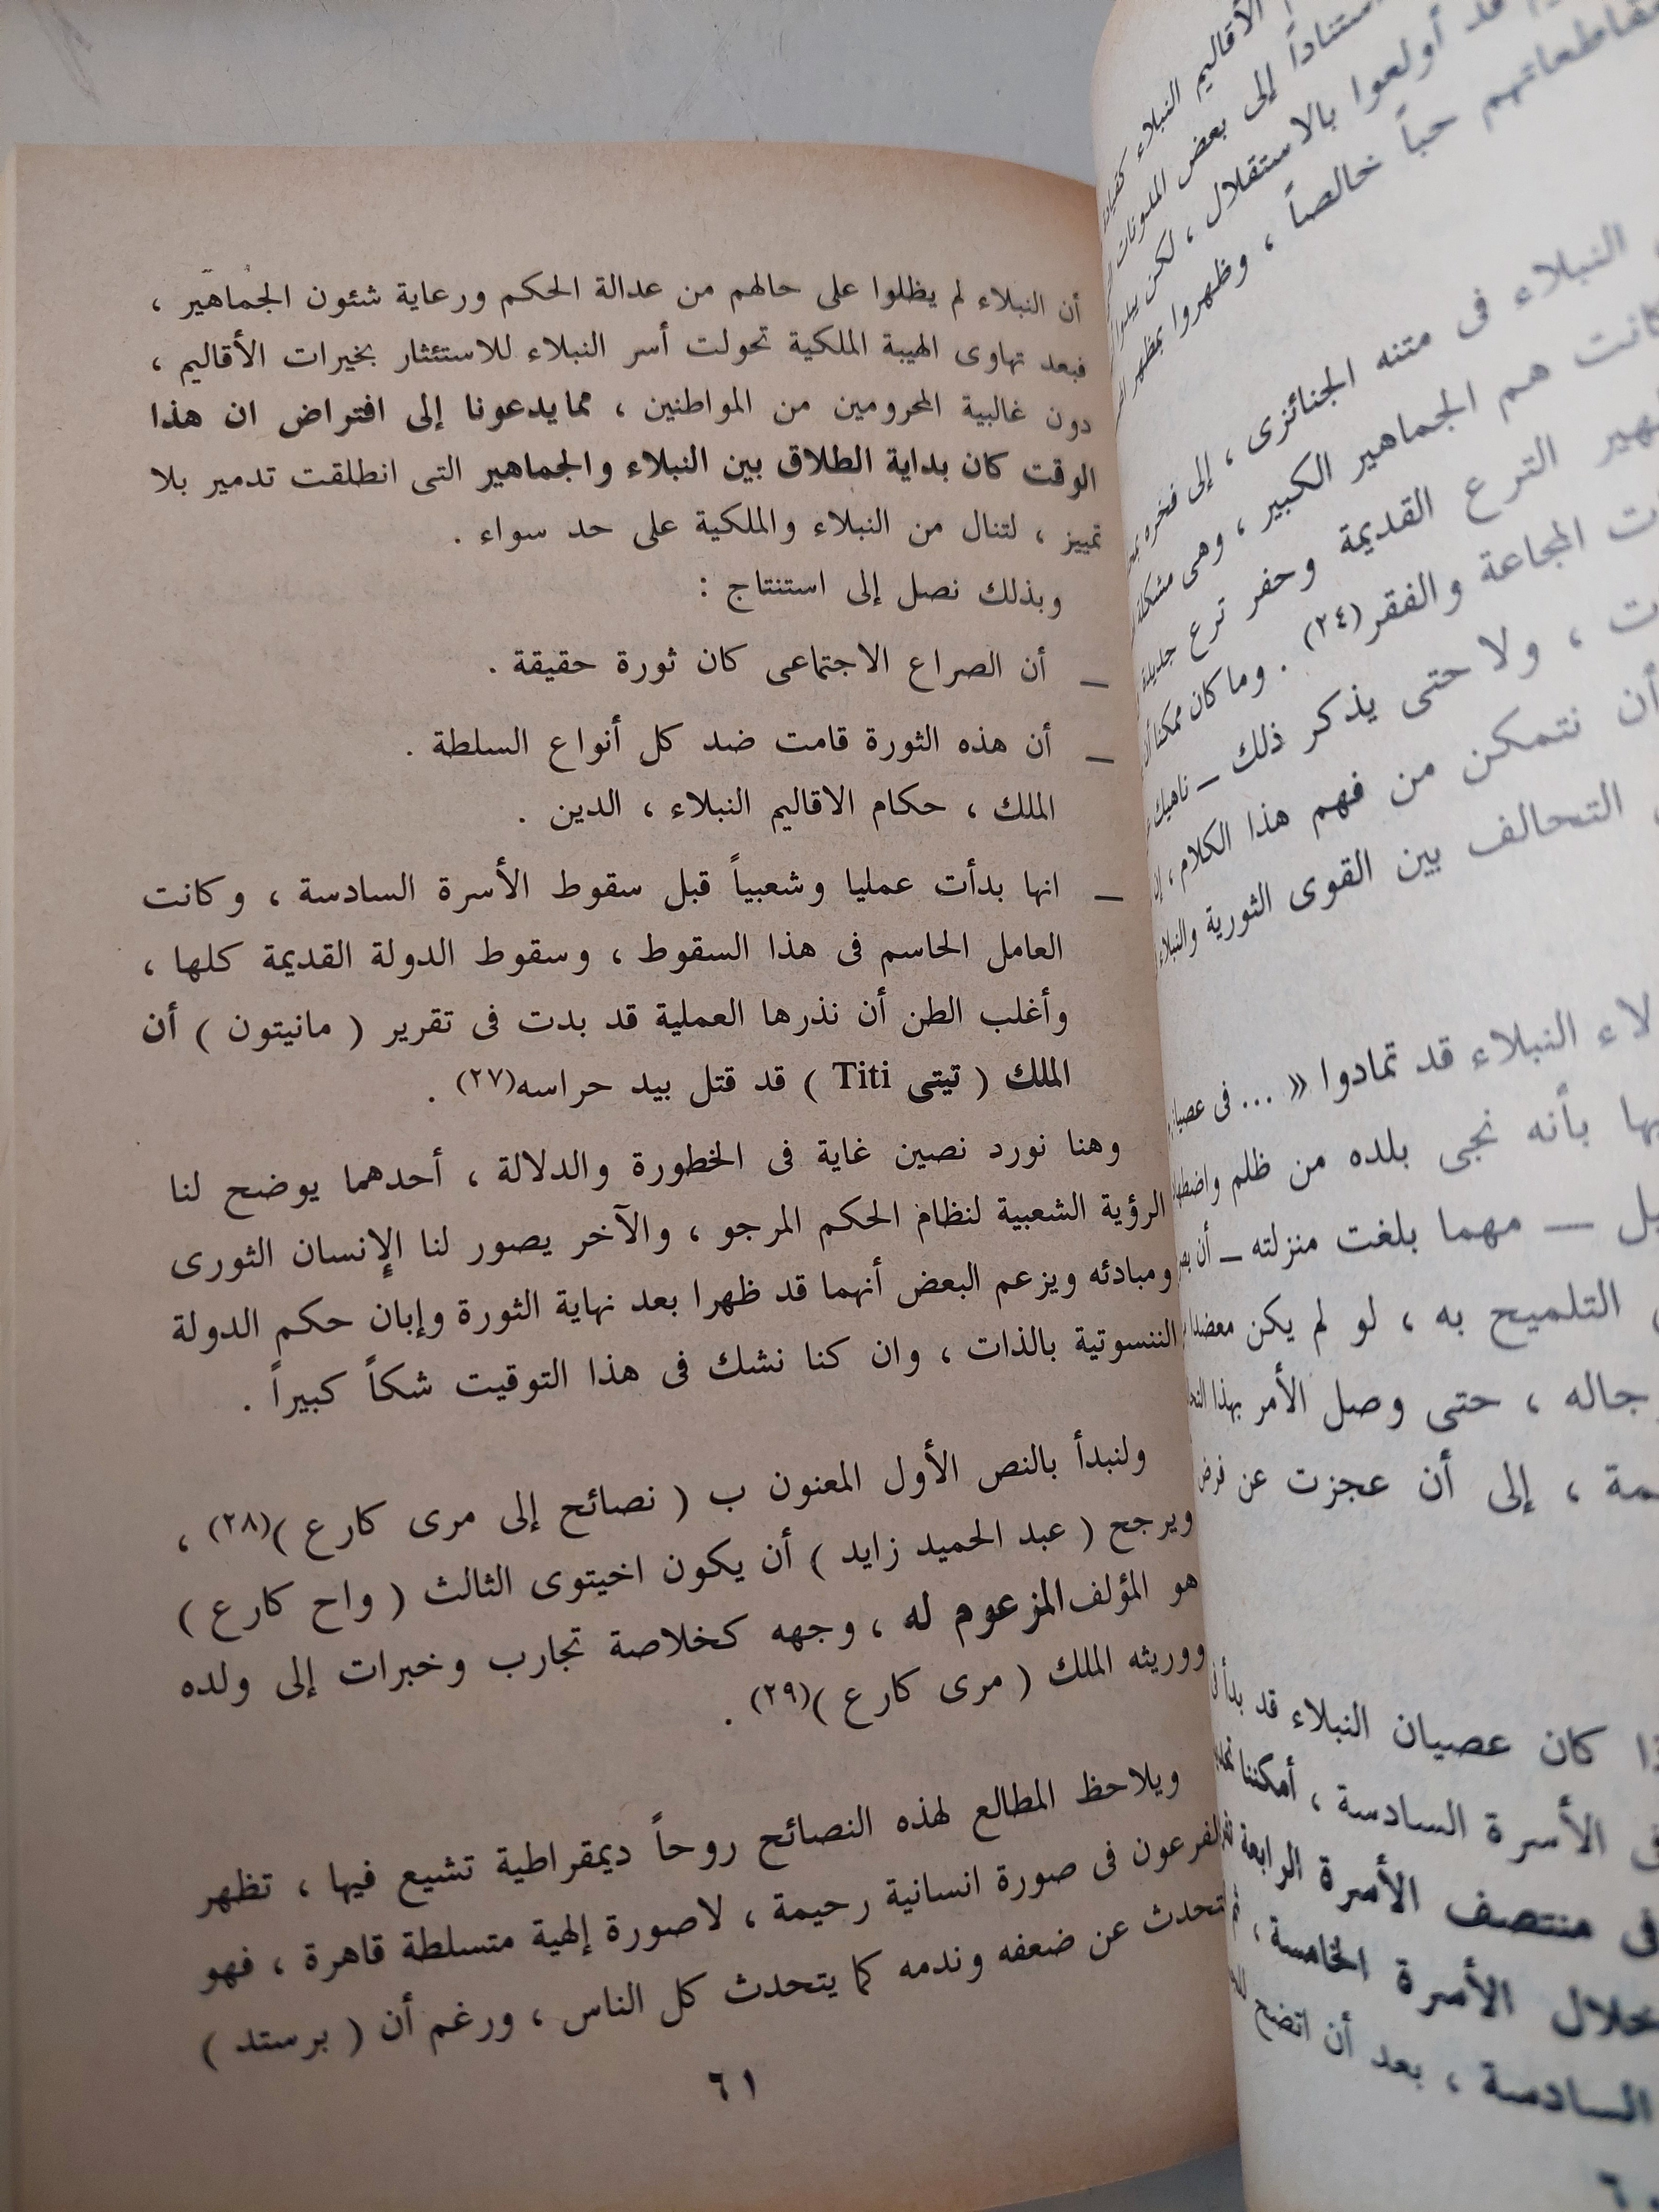 الأقاليم النبلاء
استناداً إلى بعض المدونات
قد أولعوا بالاستقلال ، لكن
مقاطعاتهم حباً خالصاً ، وظهروا بمظهر
النبلاء فى متنه الجنائزى ، إلى فخره
كانت هم الجماهير الكبير ، وهى مشكلة
الترع القديمة وحفر ترع جديدة
المجاعة والفقر(٢٤) . وما كان ممكنا
، ولا حتى يذكر ذلك ــ ناهيك
أن نتمكن من فهم هذا الكلام ،
التحالف بين القوى الثورية والنبلاء
النبلاء قد تمادوا « ... فى
بأنه نجى بلده من ظلم
ــ مهما بلغت منزلته ــ أن
التلميح به ، لو لم يكن
، حتى وصل الأمر بهذا
، إلى أن عجزت عن فرض
كان عصيان النبلاء قد بدأ
الأسرة السادسة ، أمكننا
فى منتصف الأسرة الرابعة
خلال الأسرة الخامسة ،
السادسة ، بعد أن اتضح
أن النبلاء لم يظلوا على حالهم من عدالة الحكم ورعاية شئون الجماهير ،
فبعد تهاوى الهيبة الملكية تحولت أسر النبلاء للاستئثار بخيرات الأقاليم ،
دون غالبية المحرومين من المواطنين ، مما يدعونا إلى افتراض ان هذا
الوقت كان بداية الطلاق بين النبلاء والجماهير التى انطلقت تدمير بلا
تمييز ، لتنال من النبلاء والملكية على حد سواء .
وبذلك نصل إلى استنتاج :
ــ أن الصراع الاجتماعى كان ثورة حقيقة .
ــ أن هذه الثورة قامت ضد كل أنواع السلطة .
الملك ، حكام الاقاليم النبلاء ، الدين .
ــ انها بدأت عمليا وشعبياً قبل سقوط الأسرة السادسة ، وكانت
العامل الحاسم فى هذا السقوط ، وسقوط الدولة القديمة كلها ،
وأغلب الطن أن نذرها العملية قد بدت فى تقرير ( مانيتون ) أن
الملك ( تيتى Titi ) قد قتل بيد حراسه(٢٧) .
وهنا نورد نصين غاية فى الخطورة والدلالة ، أحدهما يوضح لنا
الرؤية الشعبية لنظام الحكم المرجو ، والآخر يصور لنا الإنسان الثورى
ومبادئه ويزعم البعض أنهما قد ظهرا بعد نهاية الثورة وإبان حكم الدولة
الننسوتية بالذات ، وان كنا نشك فى هذا التوقيت شكاً كبيراً .
ولنبدأ بالنص الأول المعنون ب ( نصائح إلى مرى كارع )(٢٨) ،
ويرجح ( عبد الحميد زايد ) أن يكون اخيتوى الثالث ( واح كارع )
هو المؤلف المزعوم له ، وجهه كخلاصة تجارب وخبرات إلى ولده
ووريثه الملك ( مرى كارع )(٢٩) .
ويلاحظ المطالع لهذه النصائح روحاً ديمقراطية تشيع فيها ، تظهر
الفرعون فى صورة انسانية رحيمة ، لاصورة إلهية متسلطة قاهرة ، فهو
يتحدث عن ضعفه وندمه كما يتحدث كل الناس ، ورغم أن ( برستد )
٦١